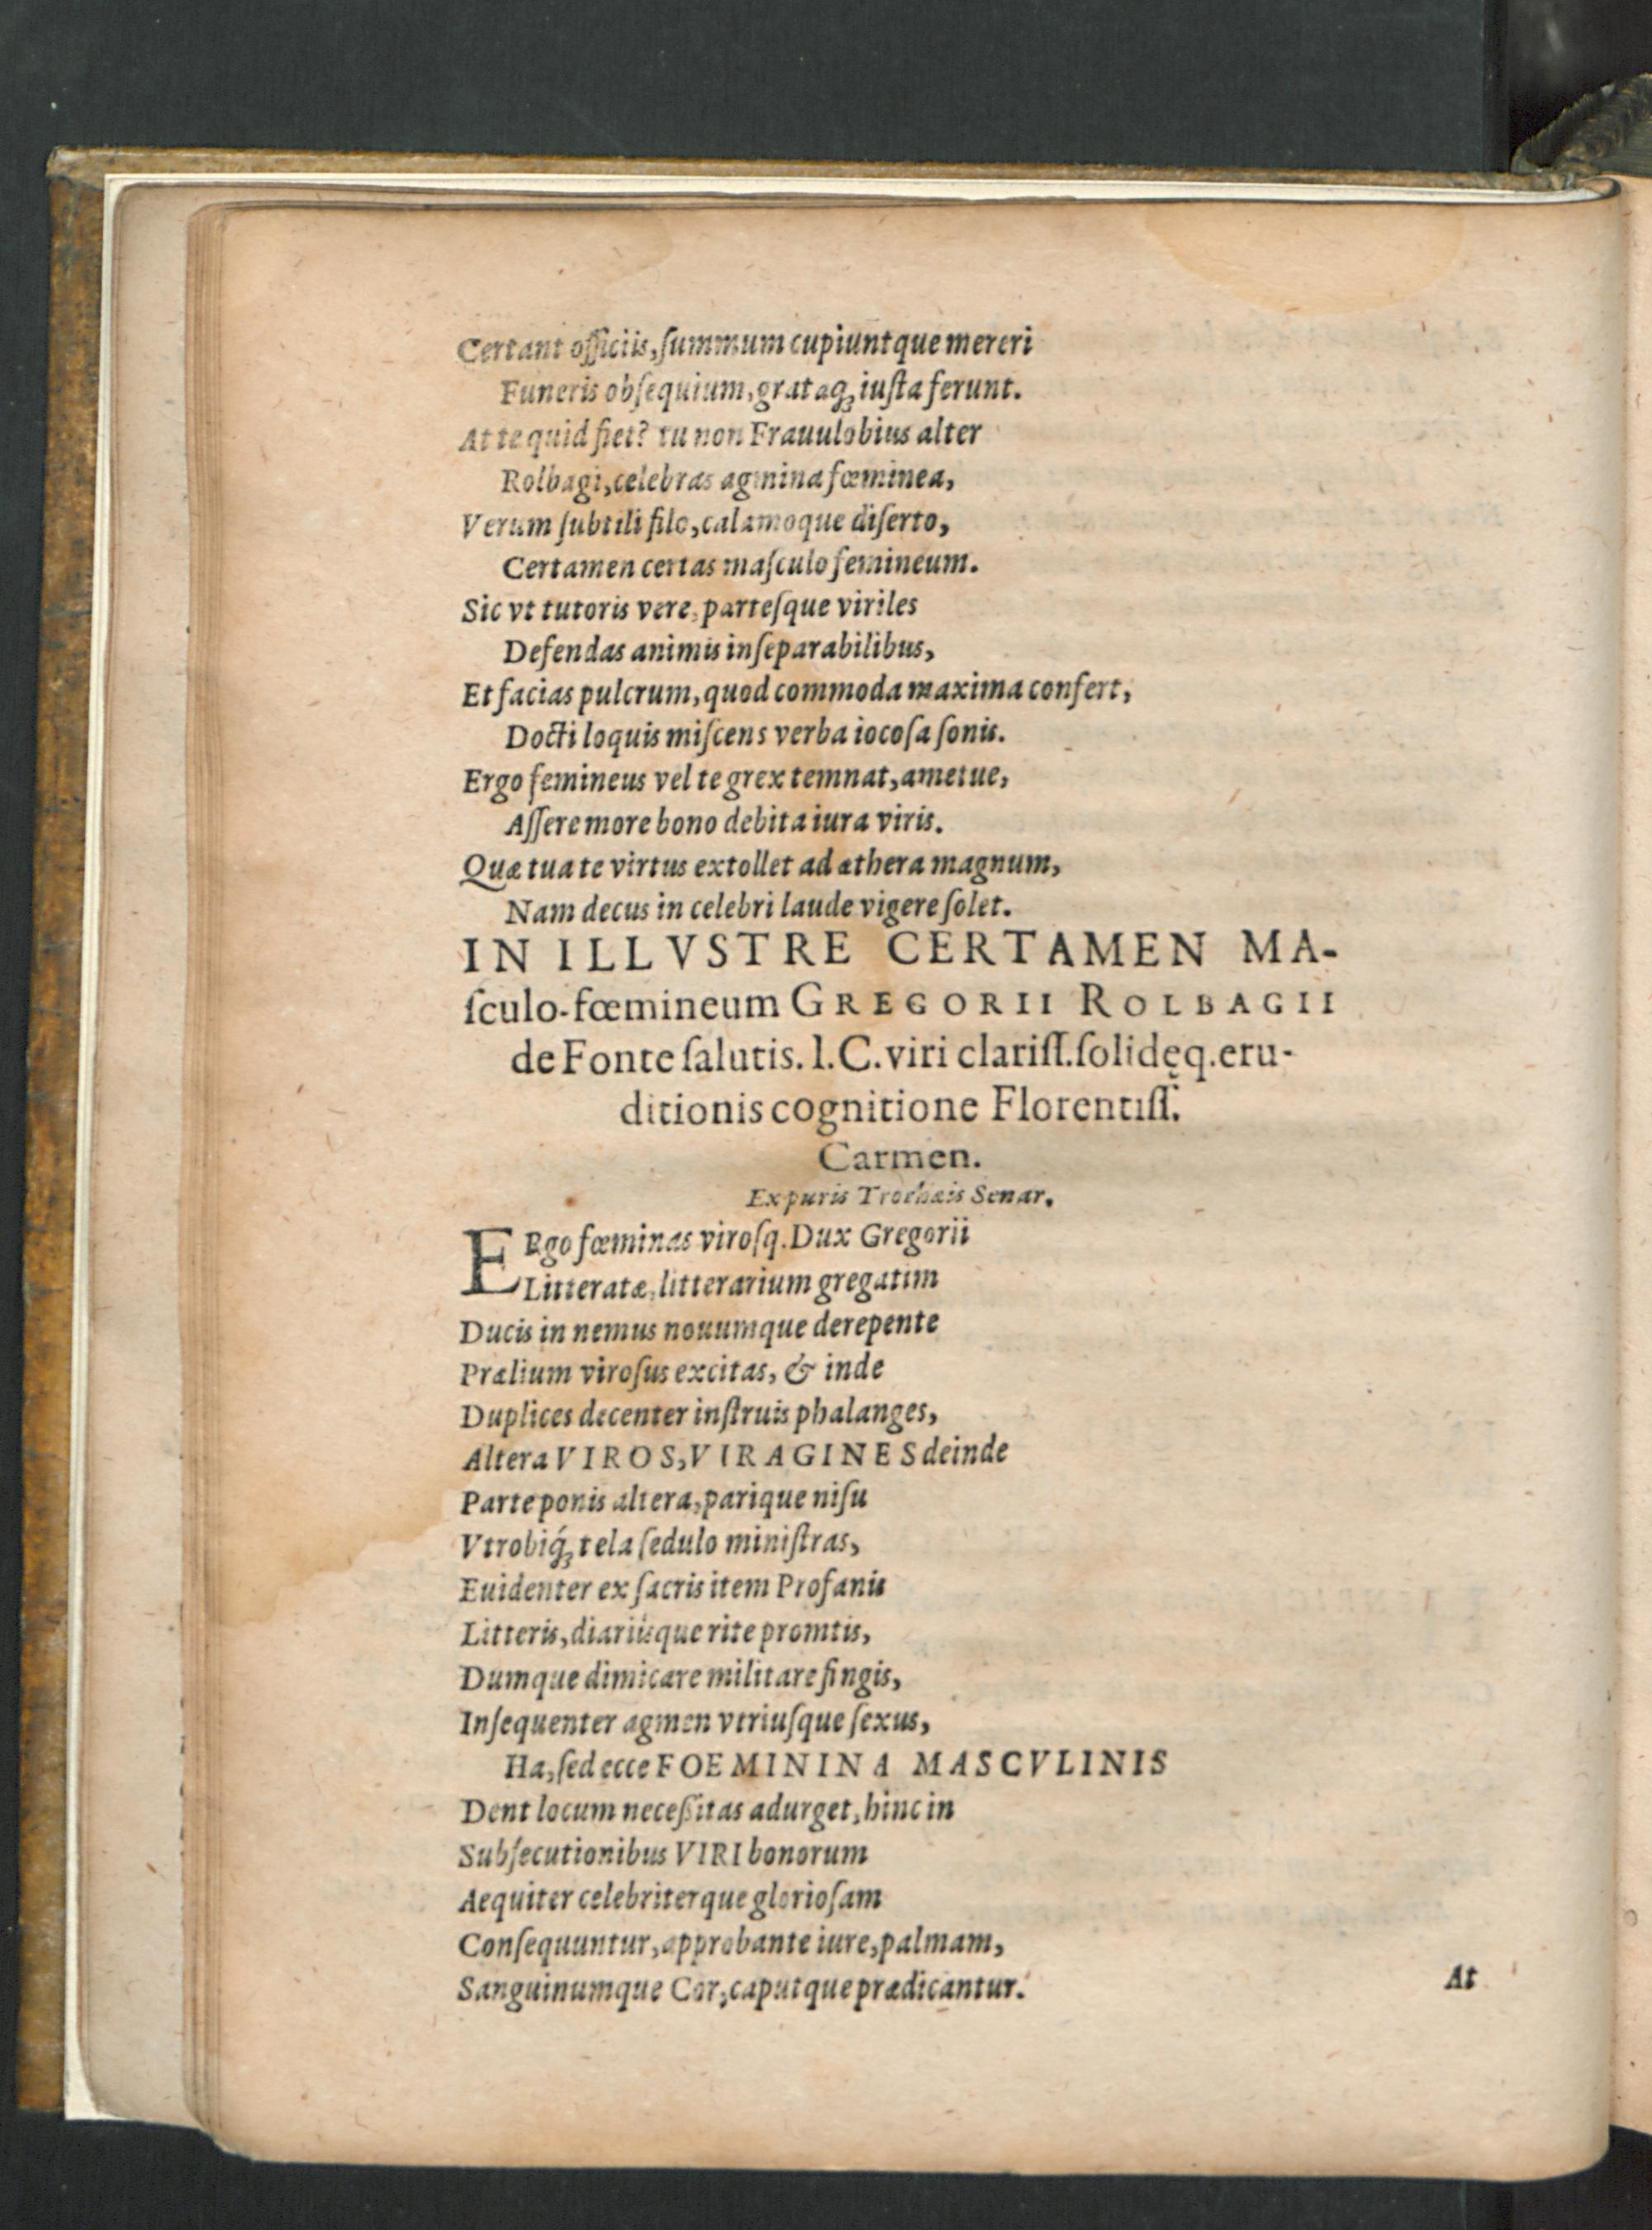 Certant officiis, ſummum cupiuntque mereri
Funeris obſequium, grataq; iuſta ferunt.
At te quid fiet? tu non Frauulobius alter
Rolbagi, celebras agmina fœminea,
Verum ſubtili filo, calamoque diſerto,
Certamen certas maſculo femineum.
Sic vt tutoris vere, parteſque viriles
Defendas animis inſeparabilibus,
Et facias pulcrum, quod commoda maxima confert,
Docti loquis miſcens verba iocoſa ſonis.
Ergo femineus vel te grex temnat, ametue,
Aſſere more bono debita iura viris.
Quæ tua te virtus extollet ad æthera magnum,
Nam decus in celebri laude vigere ſolet.
IN ILLVSTRE CERTAMEN MA-
ſculo-fœmineum GREGORII ROLBAGII
de Fonte ſalutis. I.C. viri clariſſ. ſolidęq. eru-
ditionis cognitione Florentiſſ.
Carmen.
Ex puris Trochæis Senar.
ERgo fœminas viroſq. Dux Gregorii
Litteratæ, litterarium gregatim
Ducis in nemus nouumque derepente
Prælium viroſus excitas, & inde
Duplices decenter inſtruis phalanges,
Altera VIROS, VIRAGINES deinde
Parte ponis altera, parique niſu
Vtrobiq́; tela ſedulo miniſtras,
Euidenter ex ſacris item Profanis
Litteris, diariisque rite promtis,
Dumque dimicare militare fingis,
Inſequenter agmen vtriuſque ſexus,
Ha, ſed ecce FOEMININA MASCVLINIS
Dent locum neceßitas adurget, hinc in
Subſecutionibus VIRI bonorum
Aequiter celebriterque glorioſam
Conſequuntur, approbante iure, palmam,
Sanguinumque Cor, caputque prædicantur.
At